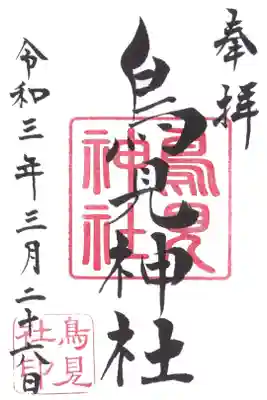 奉拝
鳥見神社
令和三年三月二十八日
鳥見
神社
鳥見
社印